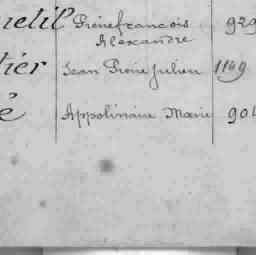 uetil Pierre françois 929
Alexandre
tier Jean Pierre Julien 1149
é Appolinaire Marie 904